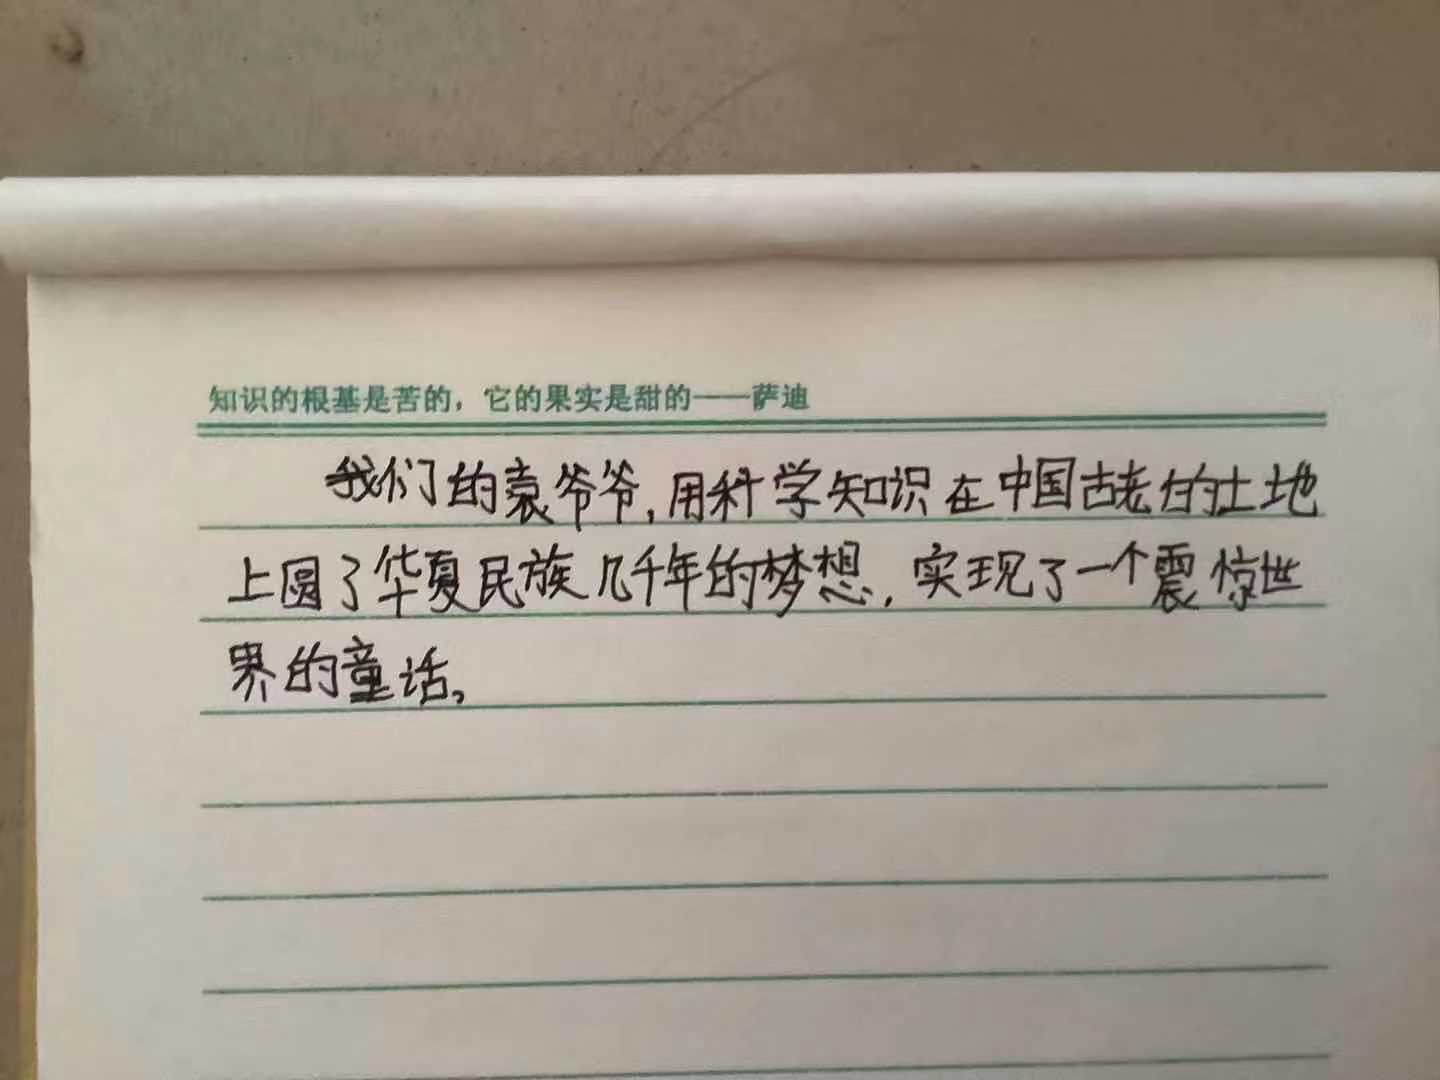 知识的根基是苦的，它的果实是甜的——萨迪
我们的袁爷爷，用科学知识在中国古老的土地
上圆了华夏民族几千年的梦想，实现了一个震惊世
界的童话。